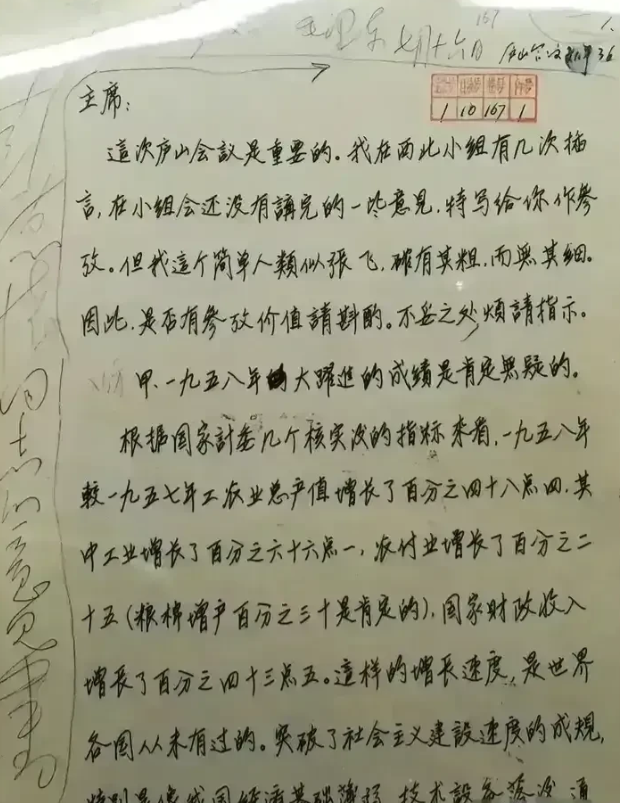 毛泽东 七月十六日
167
1.
庐山会议文件 36
1 10 167 1
彭德怀同志的意见书
主席：
這次庐山会议是重要的。我在西北小组有几次插
言，在小组会还没有講完的一些意見，特写给你作参
攷。但我這个简单人類似張飞，確有其粗，而無其細。
因此，是否有参攷价值請斟酌。不妥之处，煩請指示。
甲、一九五八年大躍進的成績是肯定無疑的。
根据国家計委几个核实後的指标来看，一九五八年
較一九五七年工农业总产值增长了百分之四十八点四，其
中工业增长了百分之六十六点一，农付业增长了百分之二
十五（粮棉增产百分之三十是肯定的），国家财政收入
增长了百分之四十三点五。這样的增长速度，是世界
各国从未有过的。突破了社会主义建設速度的成規，
特别是像我国经济基础薄弱，技术設备落後，通